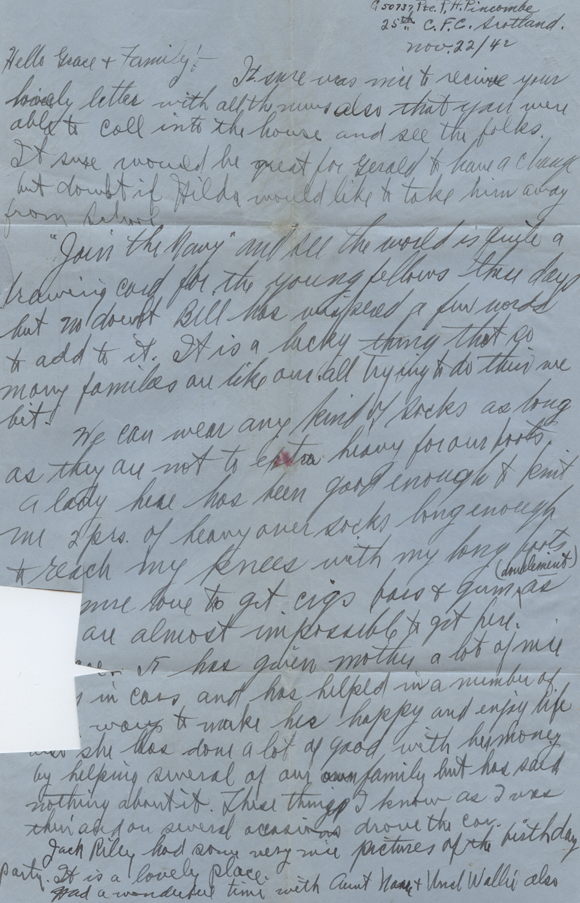 C50737 Pte. P. H. Pincombe
25th C.F.C. Scotland.
Nov. 22/42
Hello Grace & Family!-
It sure was nice to recieve your
lovely letter with all the news also that you were
able to call into the house and see the folks.
It sure would be great for Gerald to have a change
but doubt if Hilda would like to take him away
from school.
"Join the Navy" and see the world is quite a
drawing card for the young fellows these days
but no doubt Bill has wispered a few words
to add to it. It is a lucky thing that so
many families are like our all trying to do their wee
bit.
We can wear any kind of socks as long
as they are not to extra heavy for our boots.
A lady here has been good enough to knit
me 2 prs. of heavy over socks long enough
to reach my knees with my long boots
(doublement)
sure love to get cigs bars & gum, as
are almost impossible to get here.
It has given mother a lot of nice
in cars and has helped in a number of
ways to make her happy and enjoy life
also she has done a lot of good with her money
by helping several of our own family but has said
nothing about it. These things I know as I was
their and on several ocasions drove the car.
Jack Riley had some very nice pictures of the birthday
party. It is a lovely place.
Had a wonderful time with Aunt & Uncl Wallie also